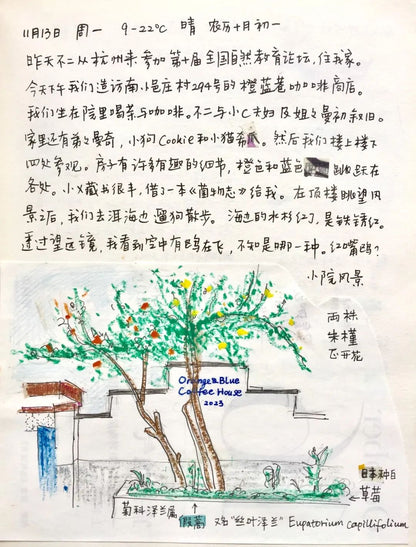 11月13日 周一 9-22℃ 晴 农历十月初一
昨天不二从杭州来参加第十届全国自然教育论坛,住我家。
今天下午我们造访南小邑庄村294号的橙蓝巷咖啡商店。
我们坐在院里喝茶与咖啡。不二与小C夫妇及姐姐曼初叙旧。
家里还有弟弟曼奇,小狗Cookie和小猫希瓜。然后我们楼上楼下
四处参观。房子有许多有趣的细节,橙色和蓝色跳跃在
各处。小X藏书很丰,借了一本《菌物志》给我。在顶楼眺望风
景之后,我们去洱海边遛狗散步。海边的水杉红了,是铁锈红。
透过望远镜,我看到空中有鸥在飞,不知是哪一种。红嘴鸥?
小院风景
两株
朱槿
正开花
Orange & Blue
Coffee House
2023
日本种白
草莓
菊科泽兰属
假蒿 又名“丝叶泽兰” Eupatorium capillifolium